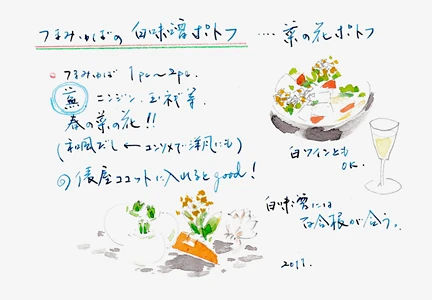 つまみゆばの 白味噌ポトフ ‥‥ 菜の花ポトフ
つまみゆば 1pc〜2pc.
蕪 ニンジン、玉ネギ等
春の菜の花!!
(和風だし ← コンソメで洋風にも)
俵屋ココットに入れるとgood!
白ワインとも
OK.
白味噌には
百合根が合う。